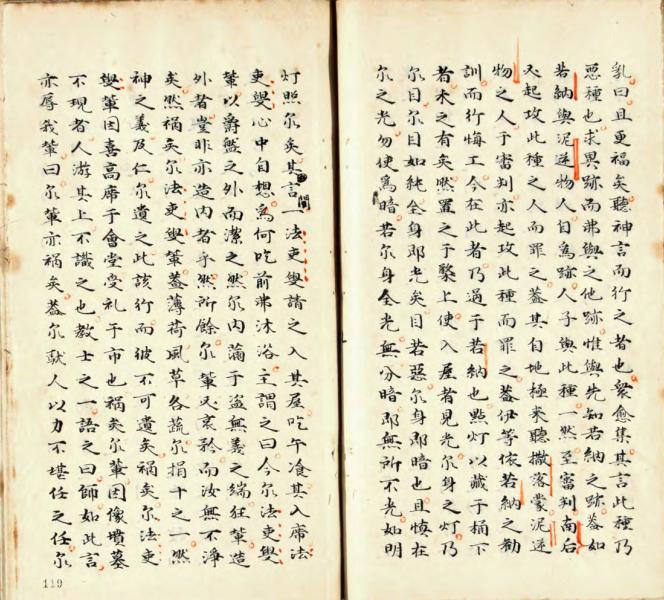 乳曰且更福矣聽神言而行之者也衆愈集其言此種乃
惡種也求異跡而弗與之他跡惟與先知若納之跡蓋如
若納與泥逆物人自為跡人子與此種一然至審判南后
必起攻此種之人而罪之蓋其自地極來聽撒落蒙泥逆
物之人于審判亦起攻此種而罪之蓋伊等依若納之勸
訓而行悔工今在此者乃過于若納也點灯以藏于桶下
者未之有矣然置之于檠上使入屋者見光尔身之灯乃
尔目尔目如純全身即光矣目若惡尔身即暗也且慎在
尔之光勿使為暗若尔身全光無分暗即無所不光如明
灯照尔矣其言間一法吏叟請之入其屋吃午飡其入席法
吏叟心中自想為何吃前弗沐浴主謂之曰今尔法吏叟
輩以爵盤之外而潔之然尔內滿于盜無義之端狂輩造
外者豈非亦造內者乎然所餘尔輩只哀矜而汝無不淨
矣然禍矣尔法吏叟輩蓋薄荷風草各蔬尔捐十之一然
神之義及仁尔遺之此該行而彼不可遺矣禍矣尔法吏
叟輩因喜高席于會堂受礼于市也禍矣尔輩因像墳墓
不現者人游其上不識之也教士之一語之曰師如此言
亦辱我輩曰尔輩亦禍矣蓋尔馱人以力不堪任之任尔
119